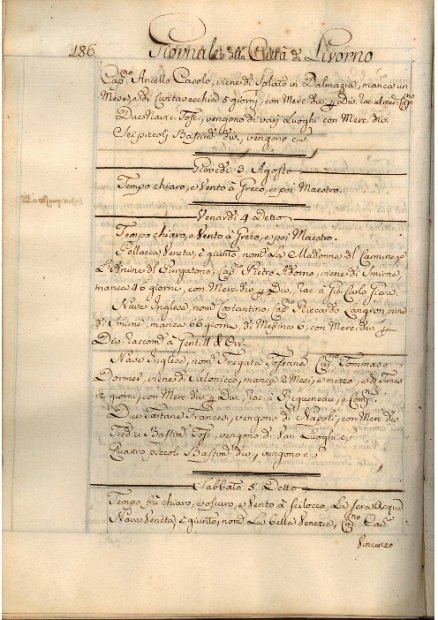 186 Giornale della Città di Livorno
Cap.no Aniello Casolo, viene di Spalato in Dalmazia, manca un
Mese, e di Civitavecchia 5 giorni, con Merc. div.
Due Tartane Tose., vengono di varj Luoghi con Merc. div.
Sei piccoli Bastim.ti div., vengono
Giovedì 3. Agosto
Tempo chiaro, e Vento à Greco, e poi Maestro.
Venardì 4 Detto
Tempo chiaro, e Vento à Greco, e poi Maestro.
Pollacca Veneta, è giunto, nom.ta La Madonna di
L'Anime di Purgatorio, Cap.no Pietro Adorno, viene di Smirne,
manca 46 giorni, con Merc. div. à Gio: Carlo
Nave Inglese, nom.ta Costantino, Cap.no Riccardo Langron, viene
di Smirne, manca 66 giorni, di Messina 6, con Merc. div.
Div. Raccom.ta à Jentill &
Nave Inglese, nom.ta Fregata Toscana Cap.no Tommaso
Dormer, viene di Salonicco, manca 2 Mesi, e mezzo, e di Tunis
12 giorni, con Merc. div. à Huguenau, e Comp.
Due Tartane Francesi, vengono di Napoli, con Merc. div.
Tredici Bastim.ti Tosc. vengono di Varj Luoghi
Quattro piccoli Bastim.ti div., vengono
Sabbato 5. Detto
Tempo frà chiaro, e oscuro, e Vento à Scilocco, La sera Acqua
Nave Veneta, è giunta, nom.ta La bella Venezia, Cap.no
Vincenzo